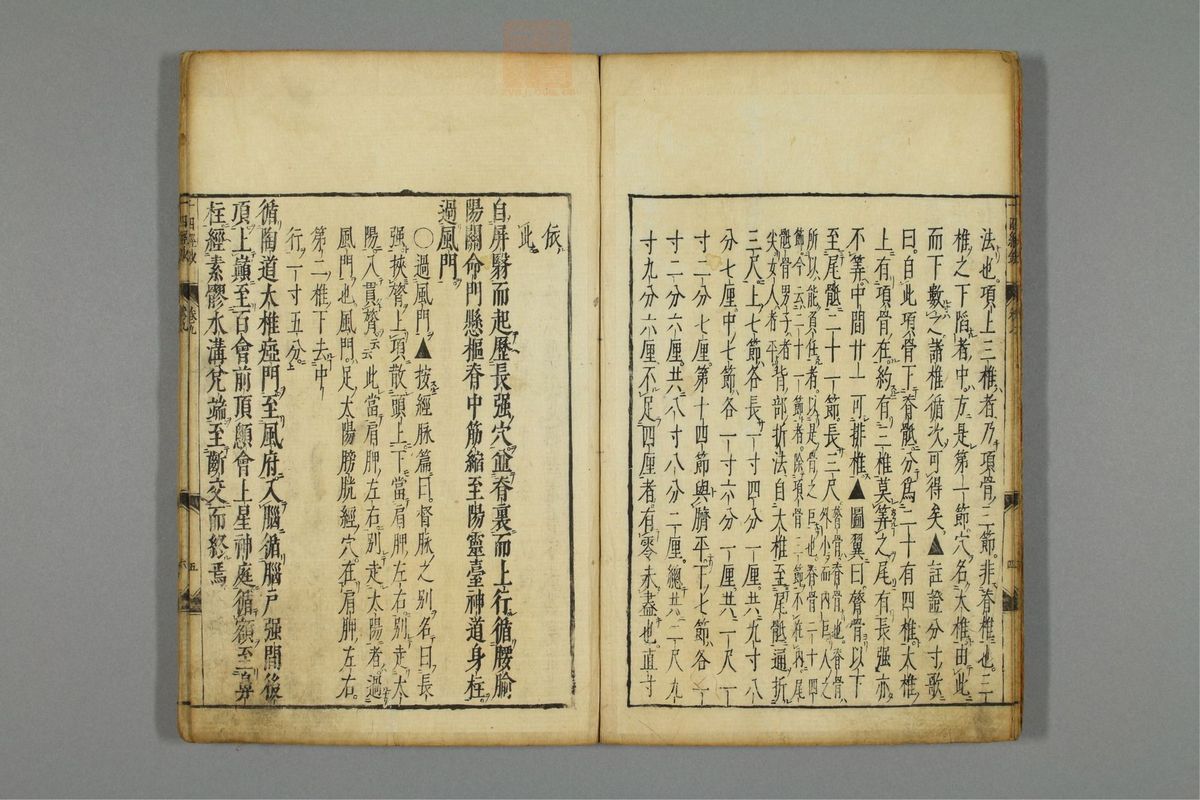 法也項上三椎者乃項骨三節非脊椎也三
椎之下陷者中方是第一節穴名大椎由此
而下數之諸椎循次可得矣▲註證分寸歌
曰自此項骨下脊骶分爲二十有四椎大椎
上有項骨在約有三椎莫筭之尾有長强亦
不筭中間廿一可排椎▲圖翼曰膂骨以下
至尾骶二十一節長三尺膂骨脊骨也脊骨
外小而内巨人之
所以能負任者以是骨之巨也脊骨二十四
節今云二十一節者除項骨三節不在内尾
骶骨男子者
尖女人者平背部折法自大椎至尾骶通折
三尺上七節各長一寸四分一厘共九寸八
分七厘中七節各一寸六分一厘共一尺一
寸二分七厘第十四節與臍平下七節各一
寸二分六厘共八寸八分二厘總共二尺九
寸九分六厘不足四厘者有零未盡也直寸
依
此
自屏翳而起歷長强穴並脊裏而上行循腰腧
陽關命門懸樞脊中筋縮至陽靈臺神道身柱
過風門
〇過風門▲按經脉篇曰督脉之别名曰長
强挾膂上項散頭上下當肩胛左右别走太
陽入貫膂云云此當肩胛左右别走太陽者過
風門也風門足太陽膀胱經穴在肩胛左右
第二椎下去中
行一寸五分
循陶道大椎瘂門至風府入腦循腦户强間後
頂上巔至百會前頂顖會上星神庭循額至鼻
柱經素髎水溝兊端至齗交而終焉